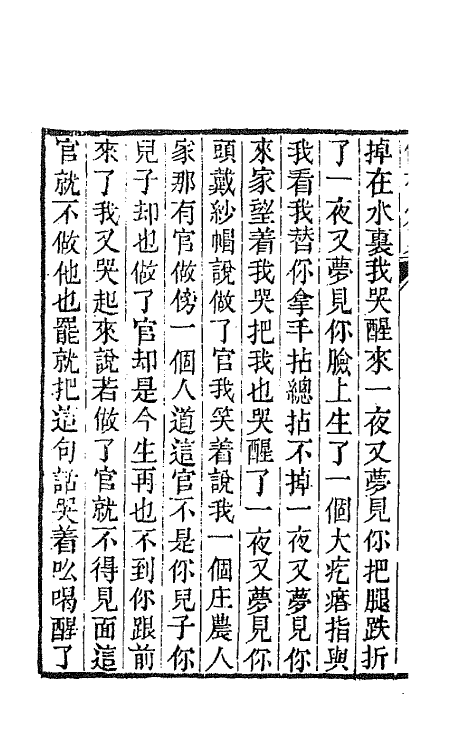 掉在水裏我哭醒來一夜又夢見你把腿跌折
了一夜又夢見你臉上生了一個大疙瘩指與
我看我替你拿手拈總拈不掉一夜又夢見你
來家望着我哭把我也哭醒了一夜又夢見你
頭戴紗帽說做了官我笑着說我一個庄農人
家那有官做傍一個人道這官不是你兒子你
兒子却也做了官却是今生再也不到你跟前
來了我又哭起來說若做了官就不得見面這
官就不做他也罷就把這句話哭着吆喝醒了